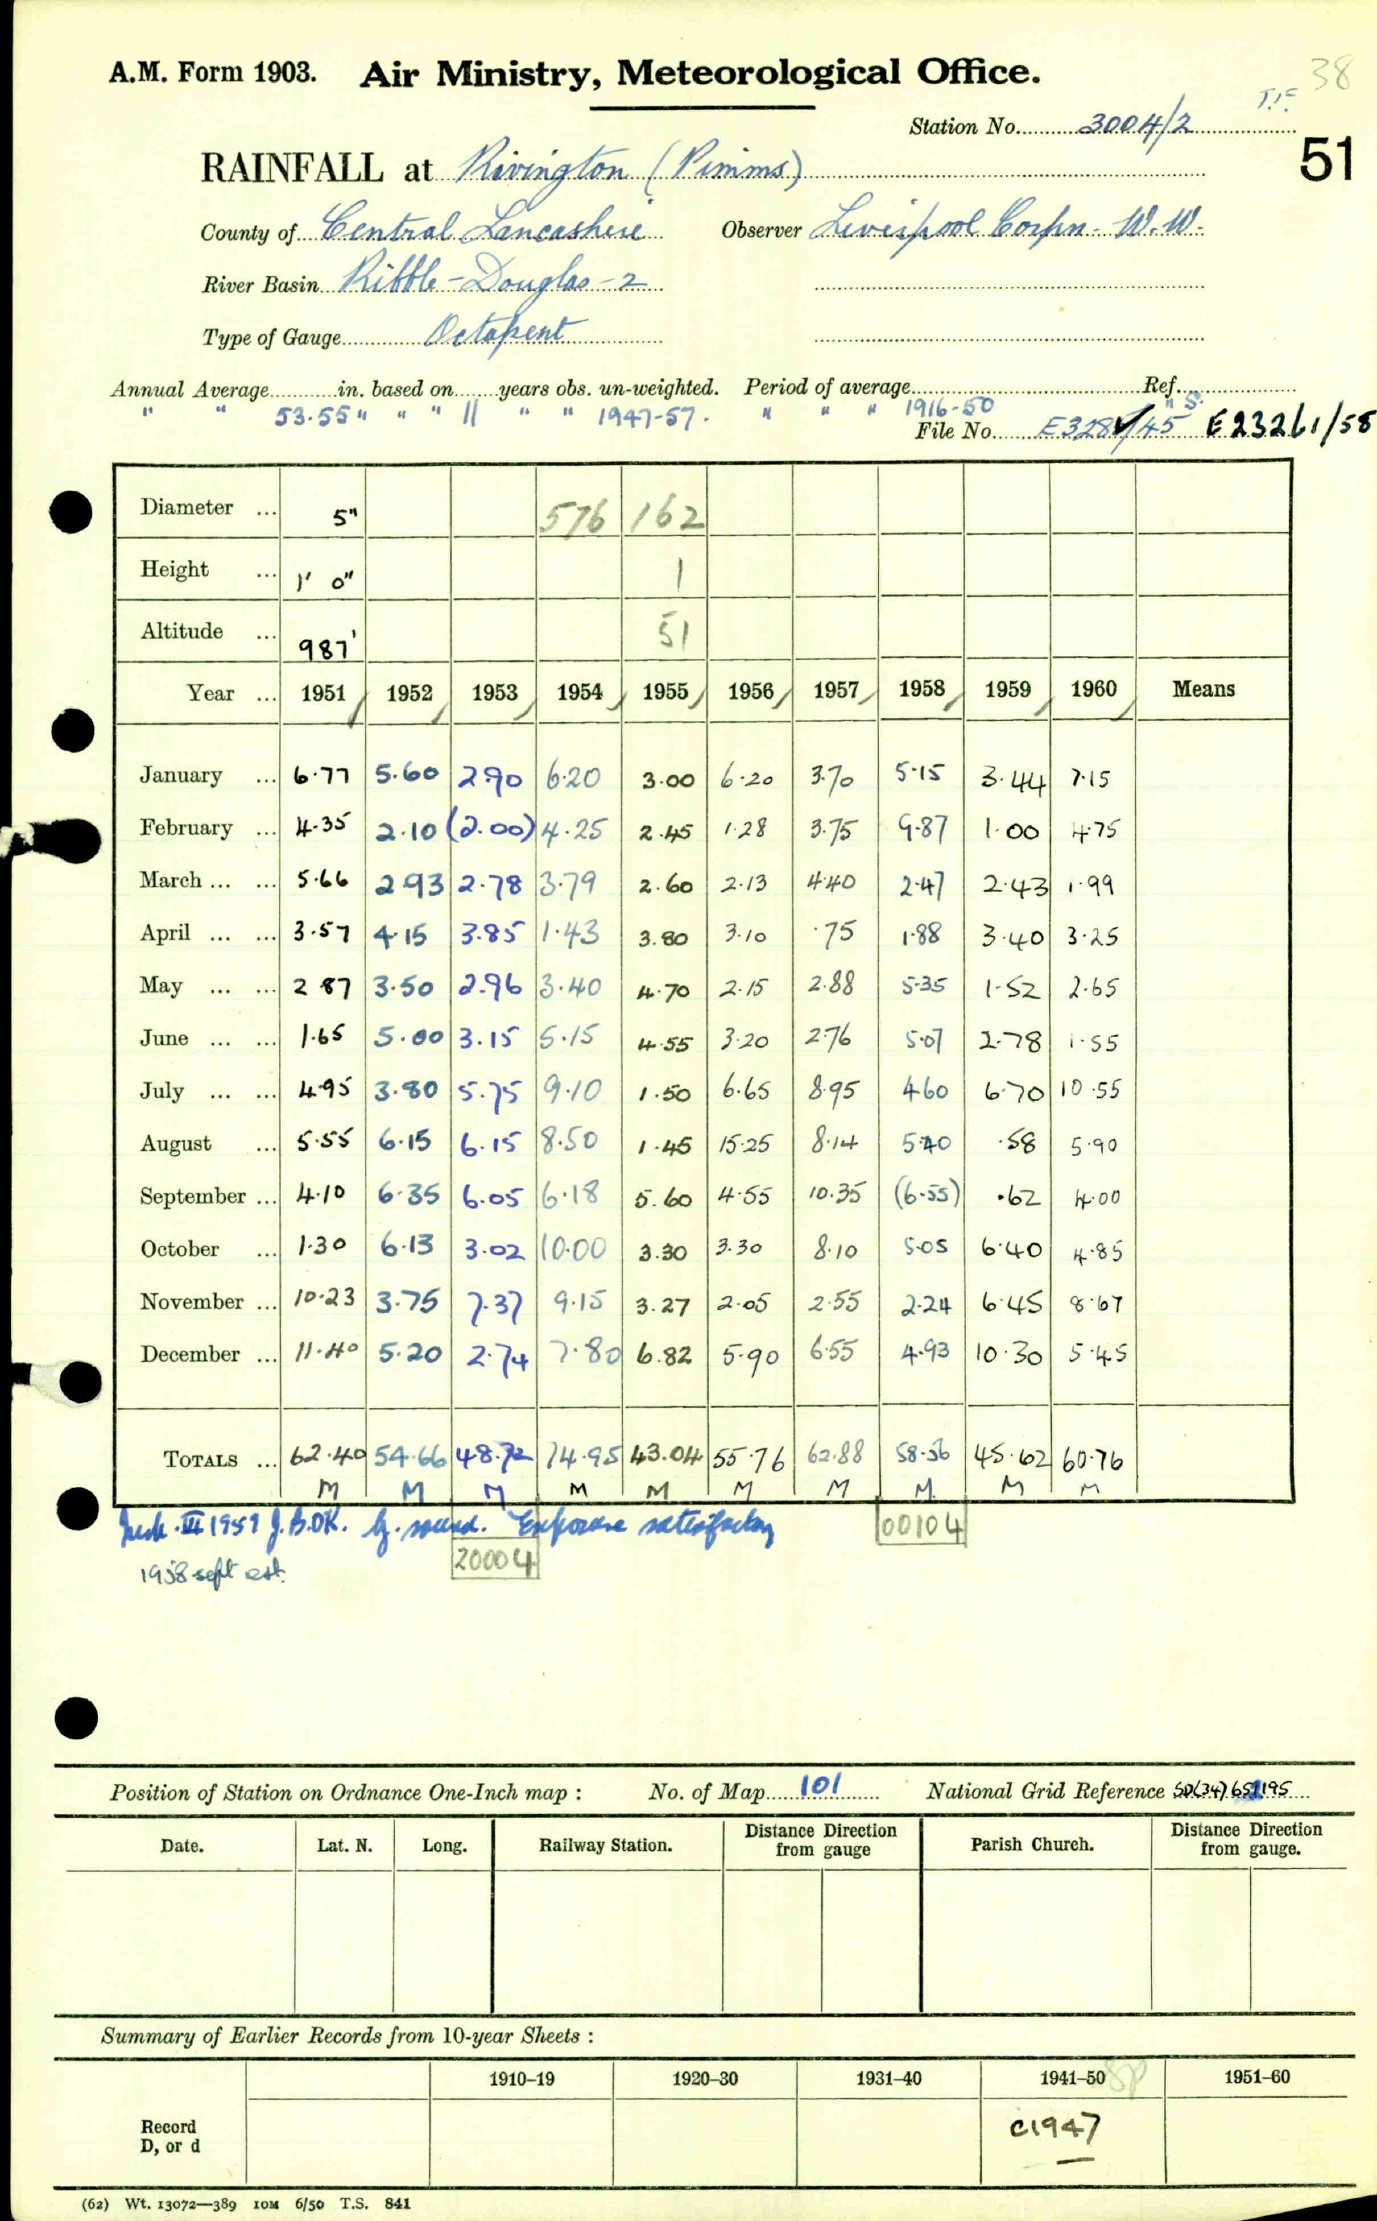 38
A.M. Form 1903. Air Ministry, Meteorological Office.
T.F.
Station No. 3004/2
51
RAINFALL at Rivington (Pimms)
County of Central Lancashire Observer Liverpool Corpn. W.W.
River Basin Ribble-Douglas-2
Type of Gauge Octapent
Annual Average in. based on years obs. un-weighted. Period of average Ref.
" " 53.55 " " " 11 " " 1947-57. " " " 1916-50 " S.
File No. E328 /45 E23261/58
Diameter ... 5" 576 162
Height ... 1' 0" 1
Altitude ... 987' 51
Year ... 1951 1952 1953 1954 1955 1956 1957 1958 1959 1960 Means
January ... 6.77 5.60 2.90 6.20 3.00 6.20 3.70 5.15 3.44 7.15
February ... 4.35 2.10 (2.00) 4.25 2.45 1.28 3.75 9.87 1.00 4.75
March ... ... 5.66 2.93 2.78 3.79 2.60 2.13 4.40 2.47 2.43 1.99
April ... ... 3.57 4.15 3.85 1.43 3.80 3.10 .75 1.88 3.40 3.25
May ... ... 2.87 3.50 2.96 3.40 4.70 2.15 2.88 5.35 1.52 2.65
June ... ... 1.65 5.00 3.15 5.15 4.55 3.20 2.76 5.07 2.78 1.55
July ... ... 4.95 3.80 5.75 9.10 1.50 6.65 8.95 4.60 6.70 10.55
August ... 5.55 6.15 6.15 8.50 1.45 15.25 8.14 5.40 .58 5.90
September ... 4.10 6.35 6.05 6.18 5.60 4.55 10.35 (6.55) .62 4.00
October ... 1.30 6.13 3.02 10.00 3.30 3.30 8.10 5.05 6.40 4.85
November ... 10.23 3.75 7.37 9.15 3.27 2.05 2.55 2.24 6.45 8.67
December ... 11.40 5.20 2.74 7.80 6.82 5.90 6.55 4.93 10.30 5.45
TOTALS ... 62.40 54.66 48.72 74.95 43.04 55.76 62.88 58.56 45.62 60.76
M M M M M M M M M M
III 1959 J.B.OK. G. sound. Exposure satisfactory
00104
20004
1958 sept est.
Position of Station on Ordnance One-Inch map : No. of Map 101 National Grid Reference SD(34) 195
Date. Lat. N. Long. Railway Station. Distance Direction from gauge Parish Church. Distance Direction from gauge.
Summary of Earlier Records from 10-year Sheets :
1910–19 1920–30 1931–40 1941–50 1951–60
Record D, or d c1947
(62) Wt. 13072—389 10M 6/50 T.S. 841